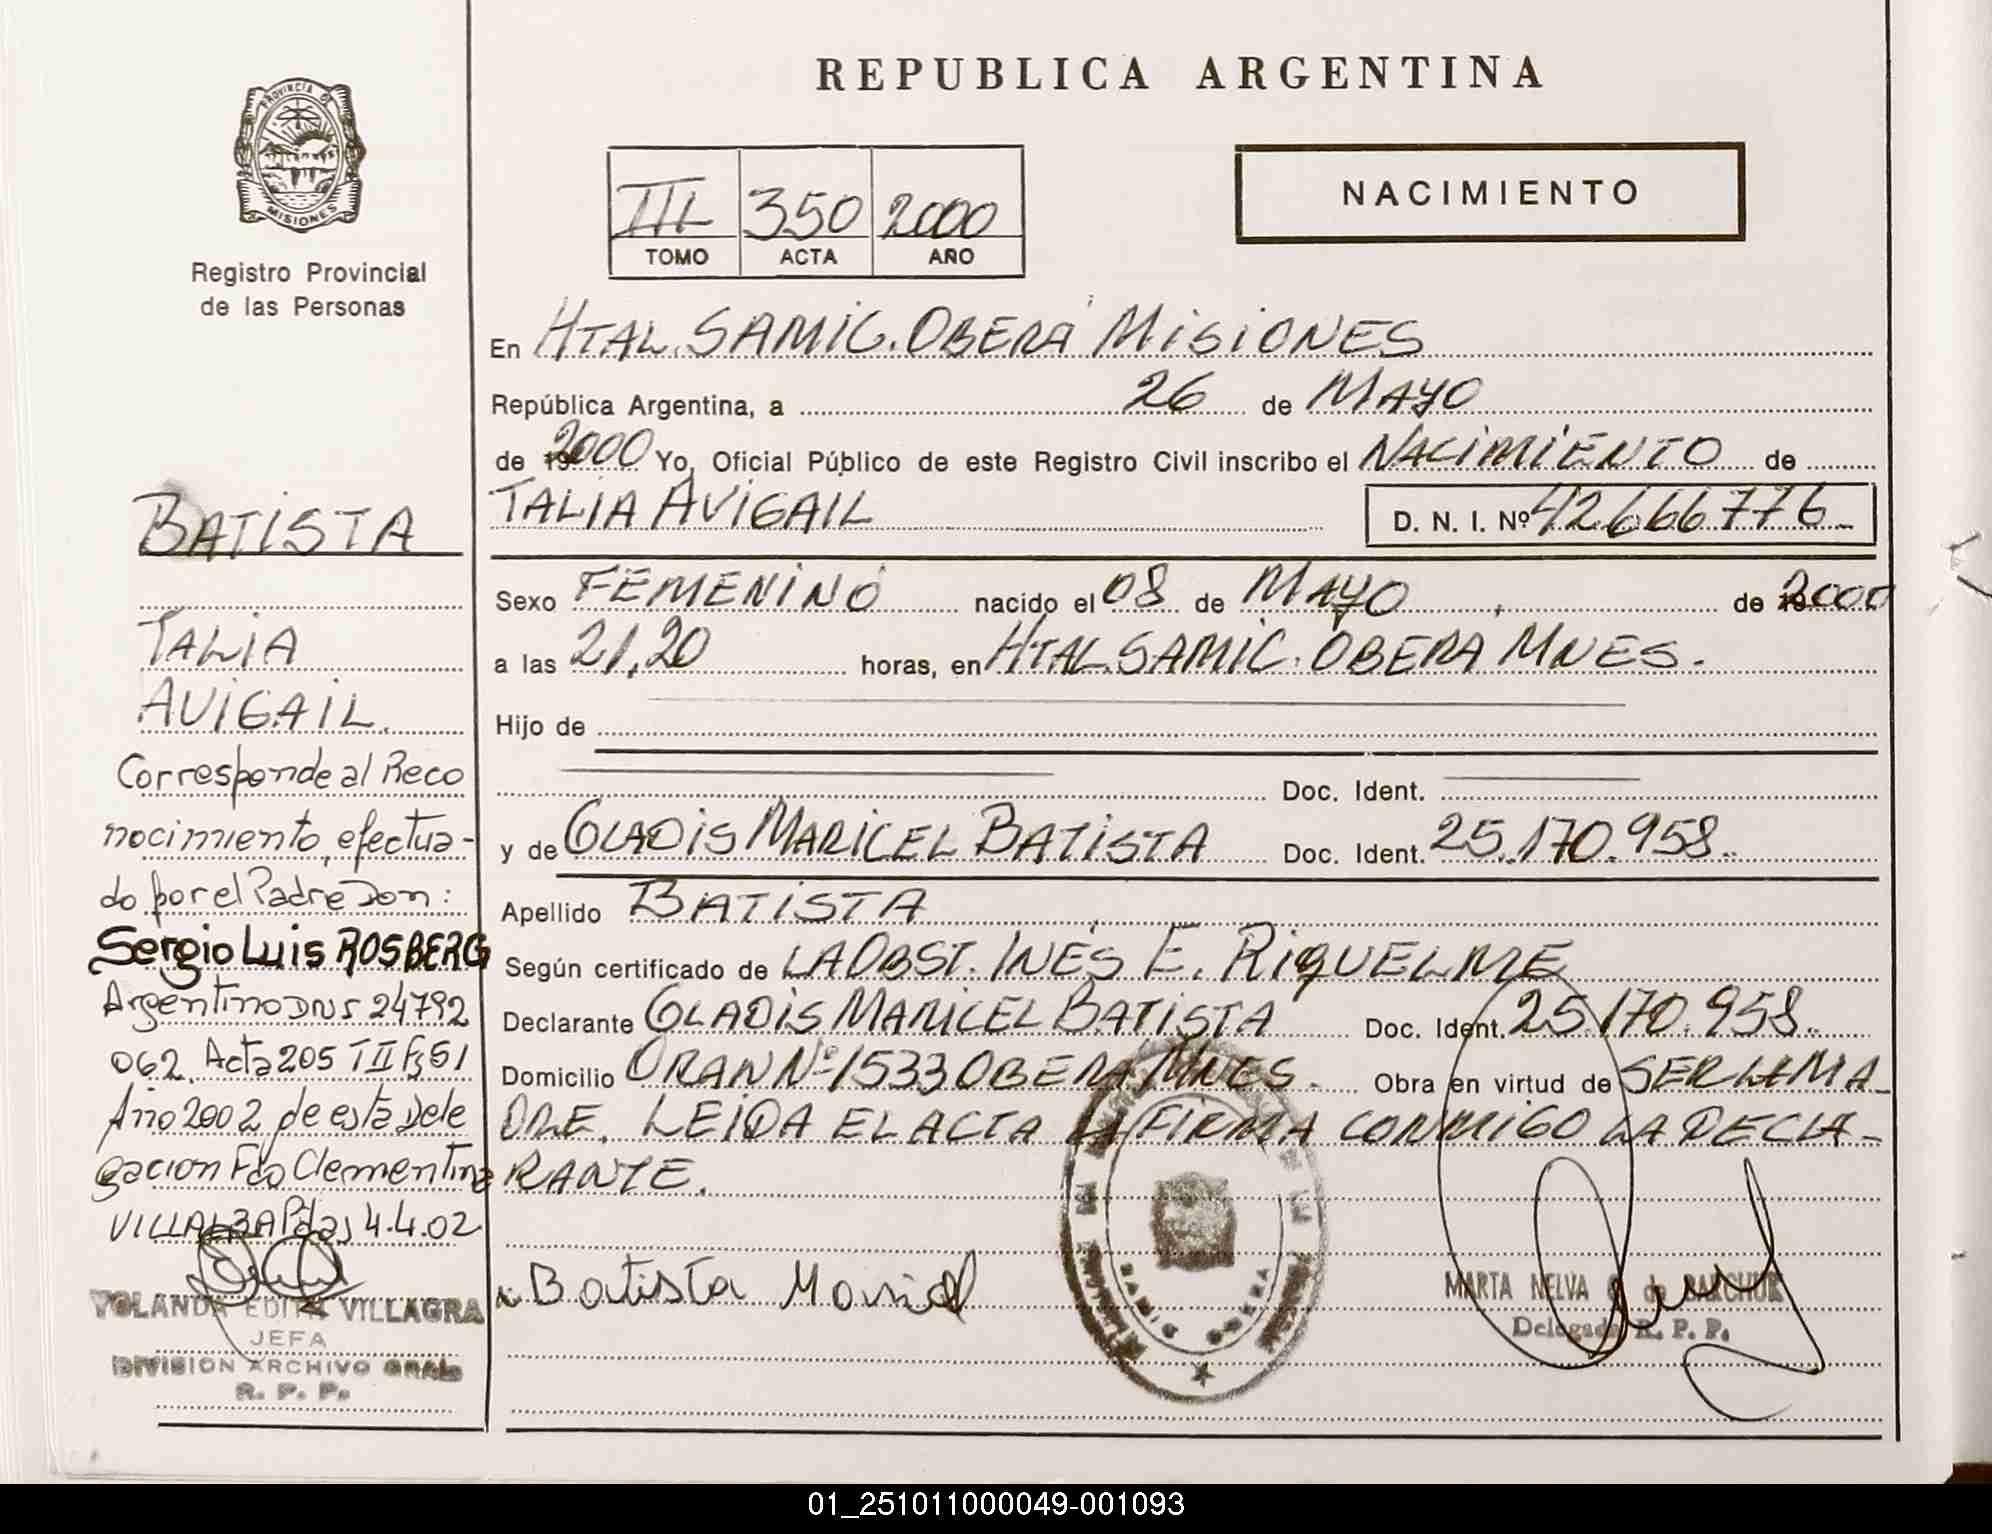 PROVINCIA DE
MISIONES
Registro Provincial
de las Personas
REPUBLICA ARGENTINA
III 350 2000
TOMO ACTA AÑO
NACIMIENTO
En HTAL. SAMIC. OBERÁ MISIONES
República Argentina, a 26 de MAYO
de 2000 Yo, Oficial Público de este Registro Civil inscribo el NACIMIENTO de
TALIA AVIGAIL D. N. I. Nº 42666776
Sexo FEMENINO nacido el 08 de MAYO de 2000
a las 21,20 horas, en HTAL. SAMIC. OBERA MNES.
Hijo de
Doc. Ident.
y de GLADIS MARICEL BATISTA Doc. Ident. 25.170.958
Apellido BATISTA
Según certificado de LA OBST. INÉS E. RIQUELME
Declarante GLADIS MARICEL BATISTA Doc. Ident. 25.170.958
Domicilio ORAN Nº 1533 OBERA MNES. Obra en virtud de SER LA MA
DRE. LEIDA EL ACTA LA FIRMA CONMIGO LA DECLA-
RANTE.
Batista Maricel
MARTA NELVA de
Delegada R. P. P.
BATISTA
TALIA
AVIGAIL
Corresponde al Reco
nocimiento efectua-
do por el Padre Don:
Sergio Luis ROSBERG
Argentino DNI 24792
062. Acta 205 T II Fº 51
Año 2002 de esta Dele
gacion Fdo Clementina
VILLALBA Pdas 4.4.02
YOLANDA EDITH VILLAGRA
JEFA
DIVISION ARCHIVO GRAL.
R. P. P.
01_251011000049-001093